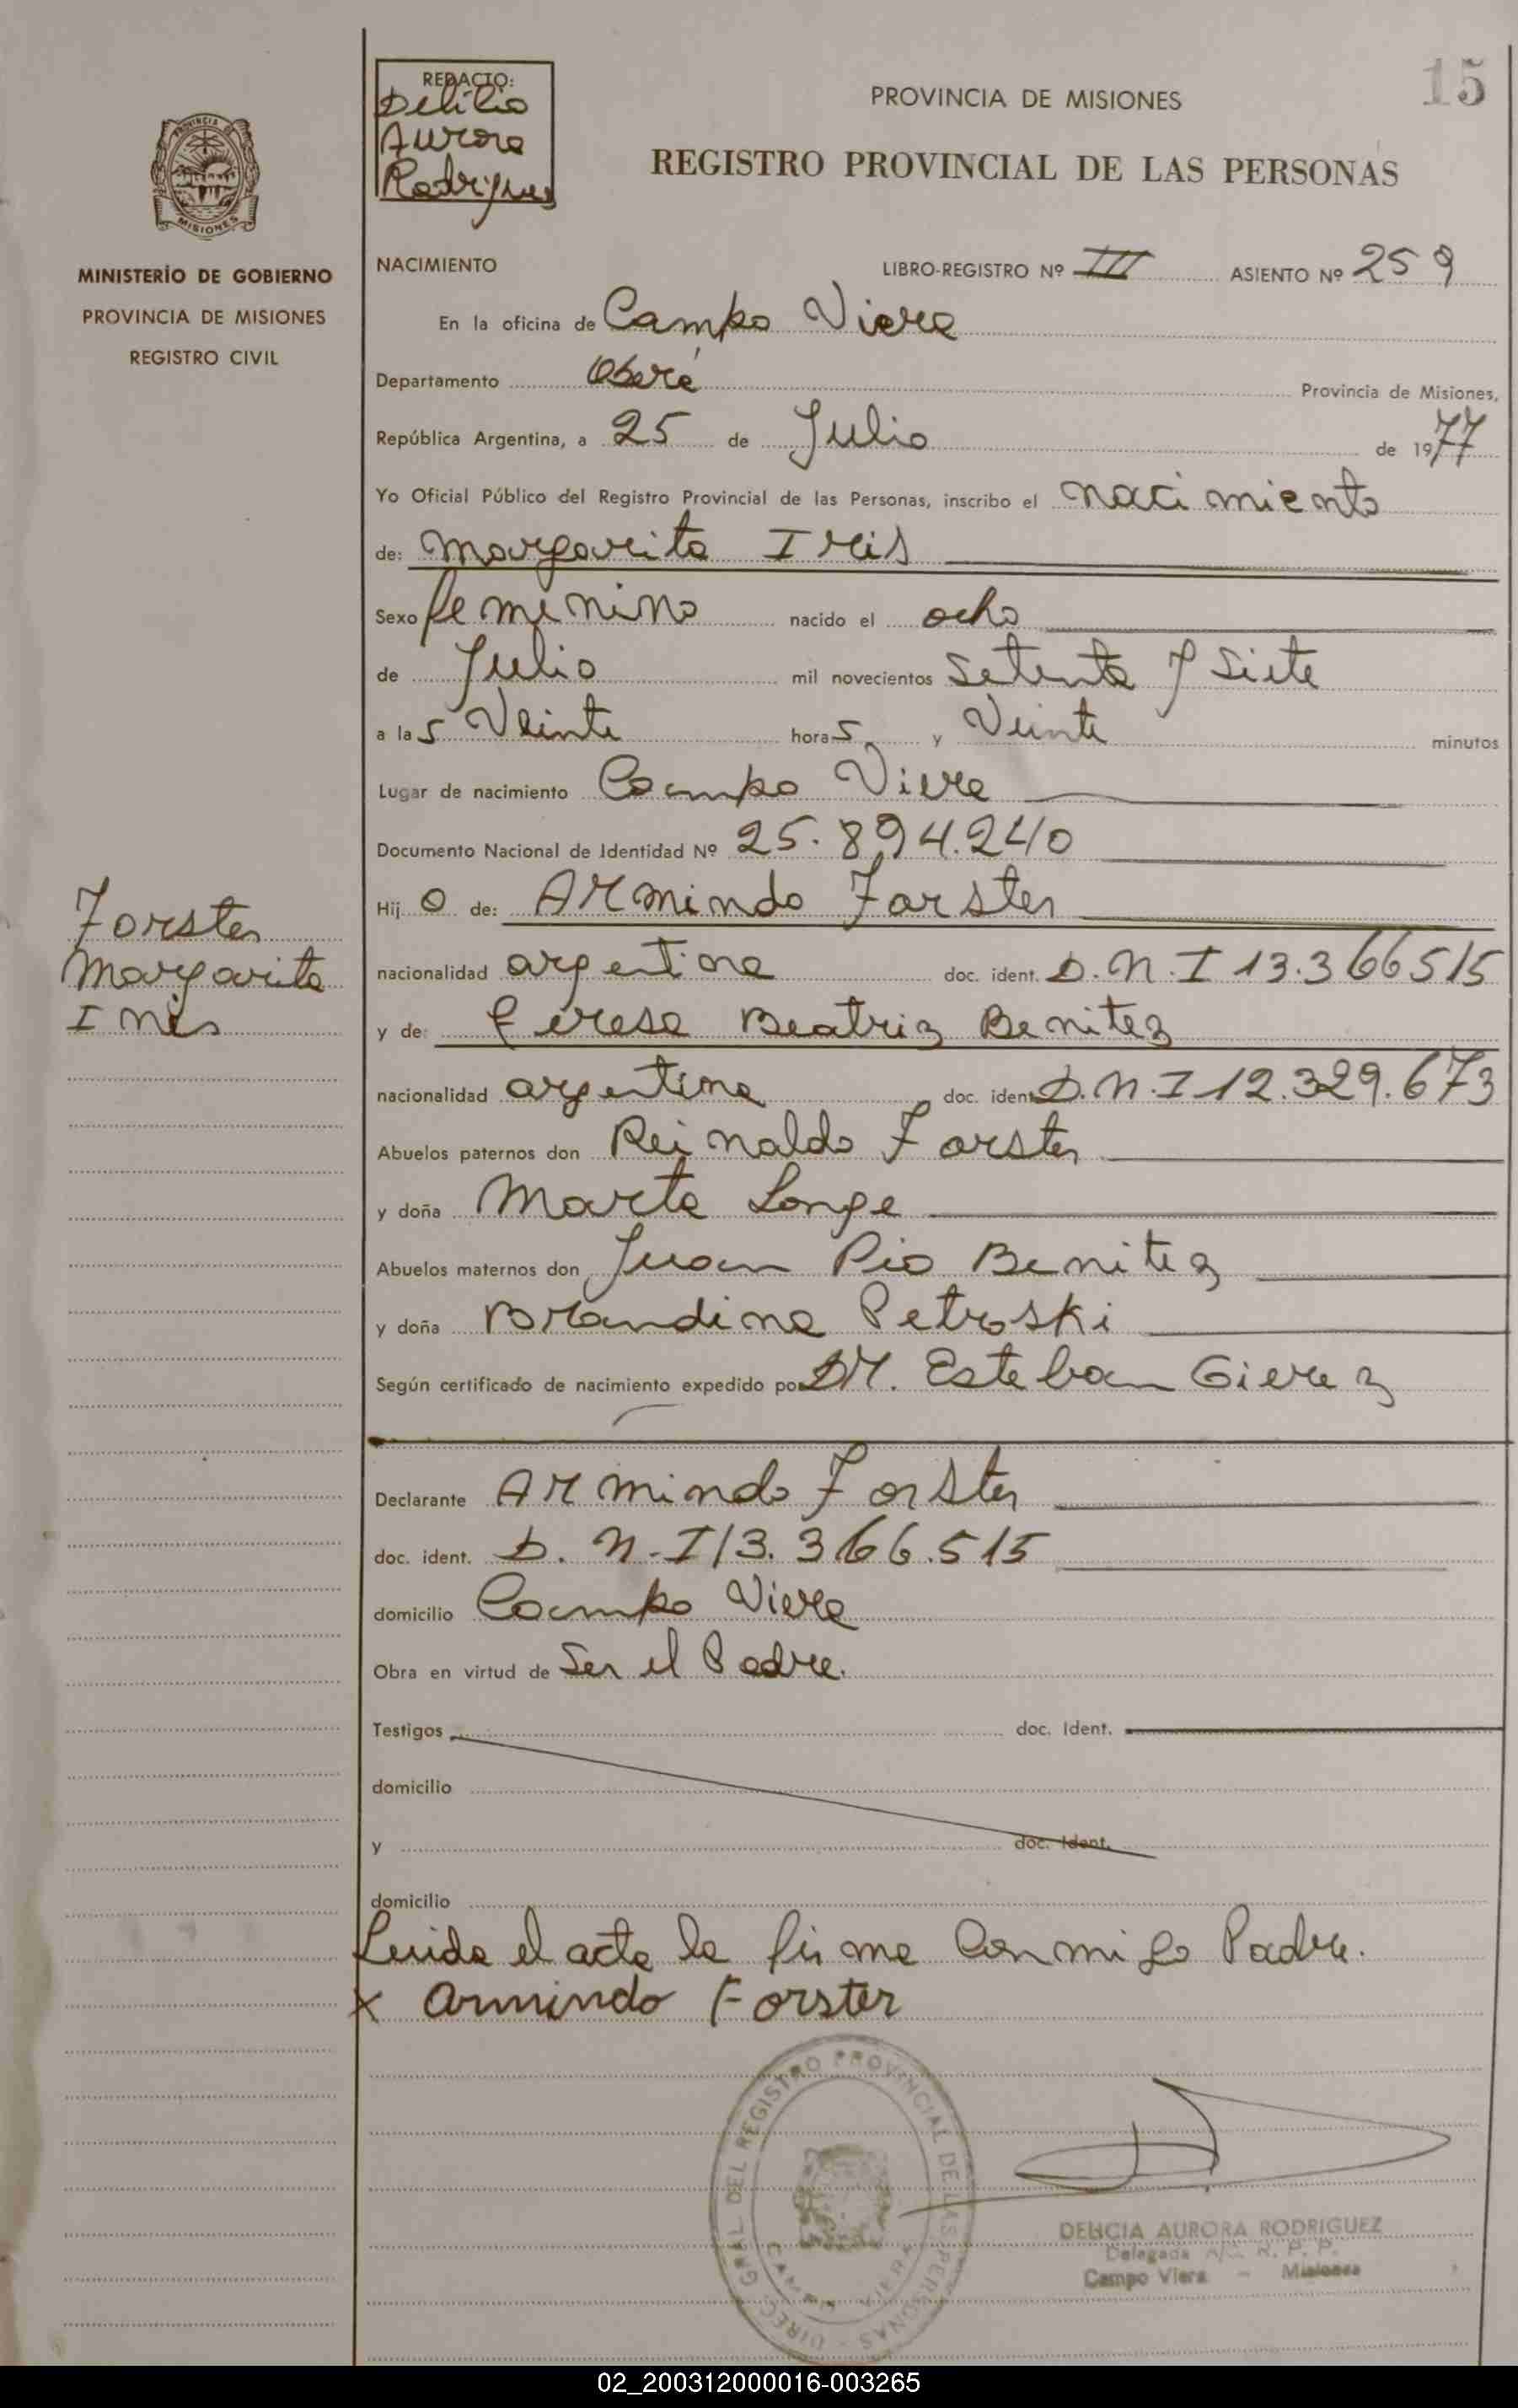 15
REDACTO:
Delicia
Aurora
Rodriguez
PROVINCIA DE MISIONES
REGISTRO PROVINCIAL DE LAS PERSONAS
MISIONES
MINISTERIO DE GOBIERNO
PROVINCIA DE MISIONES
REGISTRO CIVIL
NACIMIENTO LIBRO-REGISTRO Nº III ASIENTO Nº 259
En la oficina de Campo Viera
Departamento Oberá Provincia de Misiones,
República Argentina, a 25 de Julio de 1977
Yo Oficial Público del Registro Provincial de las Personas, inscribo el nacimiento
de: Margarita Iris
Sexo femenino nacido el ocho
de Julio mil novecientos setenta y siete
a las veinte horas y veinte minutos
Lugar de nacimiento Campo Viera
Documento Nacional de Identidad Nº 25.894.240
Hijo de: Armindo Forster
Forster
Margarita
nacionalidad argentina doc. ident. D.N.I 13.366515
y de: Teresa Beatriz Benitez
nacionalidad argentina doc. ident D.N.I 12.329.673
Abuelos paternos don Reinaldo Forster
y doña Marta Longe
Abuelos maternos don Juan Pio Benitez
y doña Brandina Petroski
Según certificado de nacimiento expedido por DR. Esteban Gierez
Declarante Armindo Forster
doc. ident. D.N.I 13.366.515
domicilio Campo Viera
Obra en virtud de ser el Padre.
Testigos doc. Ident.
domicilio
y doc. Ident.
domicilio
Leida el acta la firma conmigo Padre.
X Armindo Forster
DIREC. GRAL. DEL REGISTRO PROVINCIAL DE LAS PERSONAS
CAMPO VIERA
DELICIA AURORA RODRIGUEZ
Delegada A/C R. P. P.
Campo Viera - Misiones
02_200312000016-003265